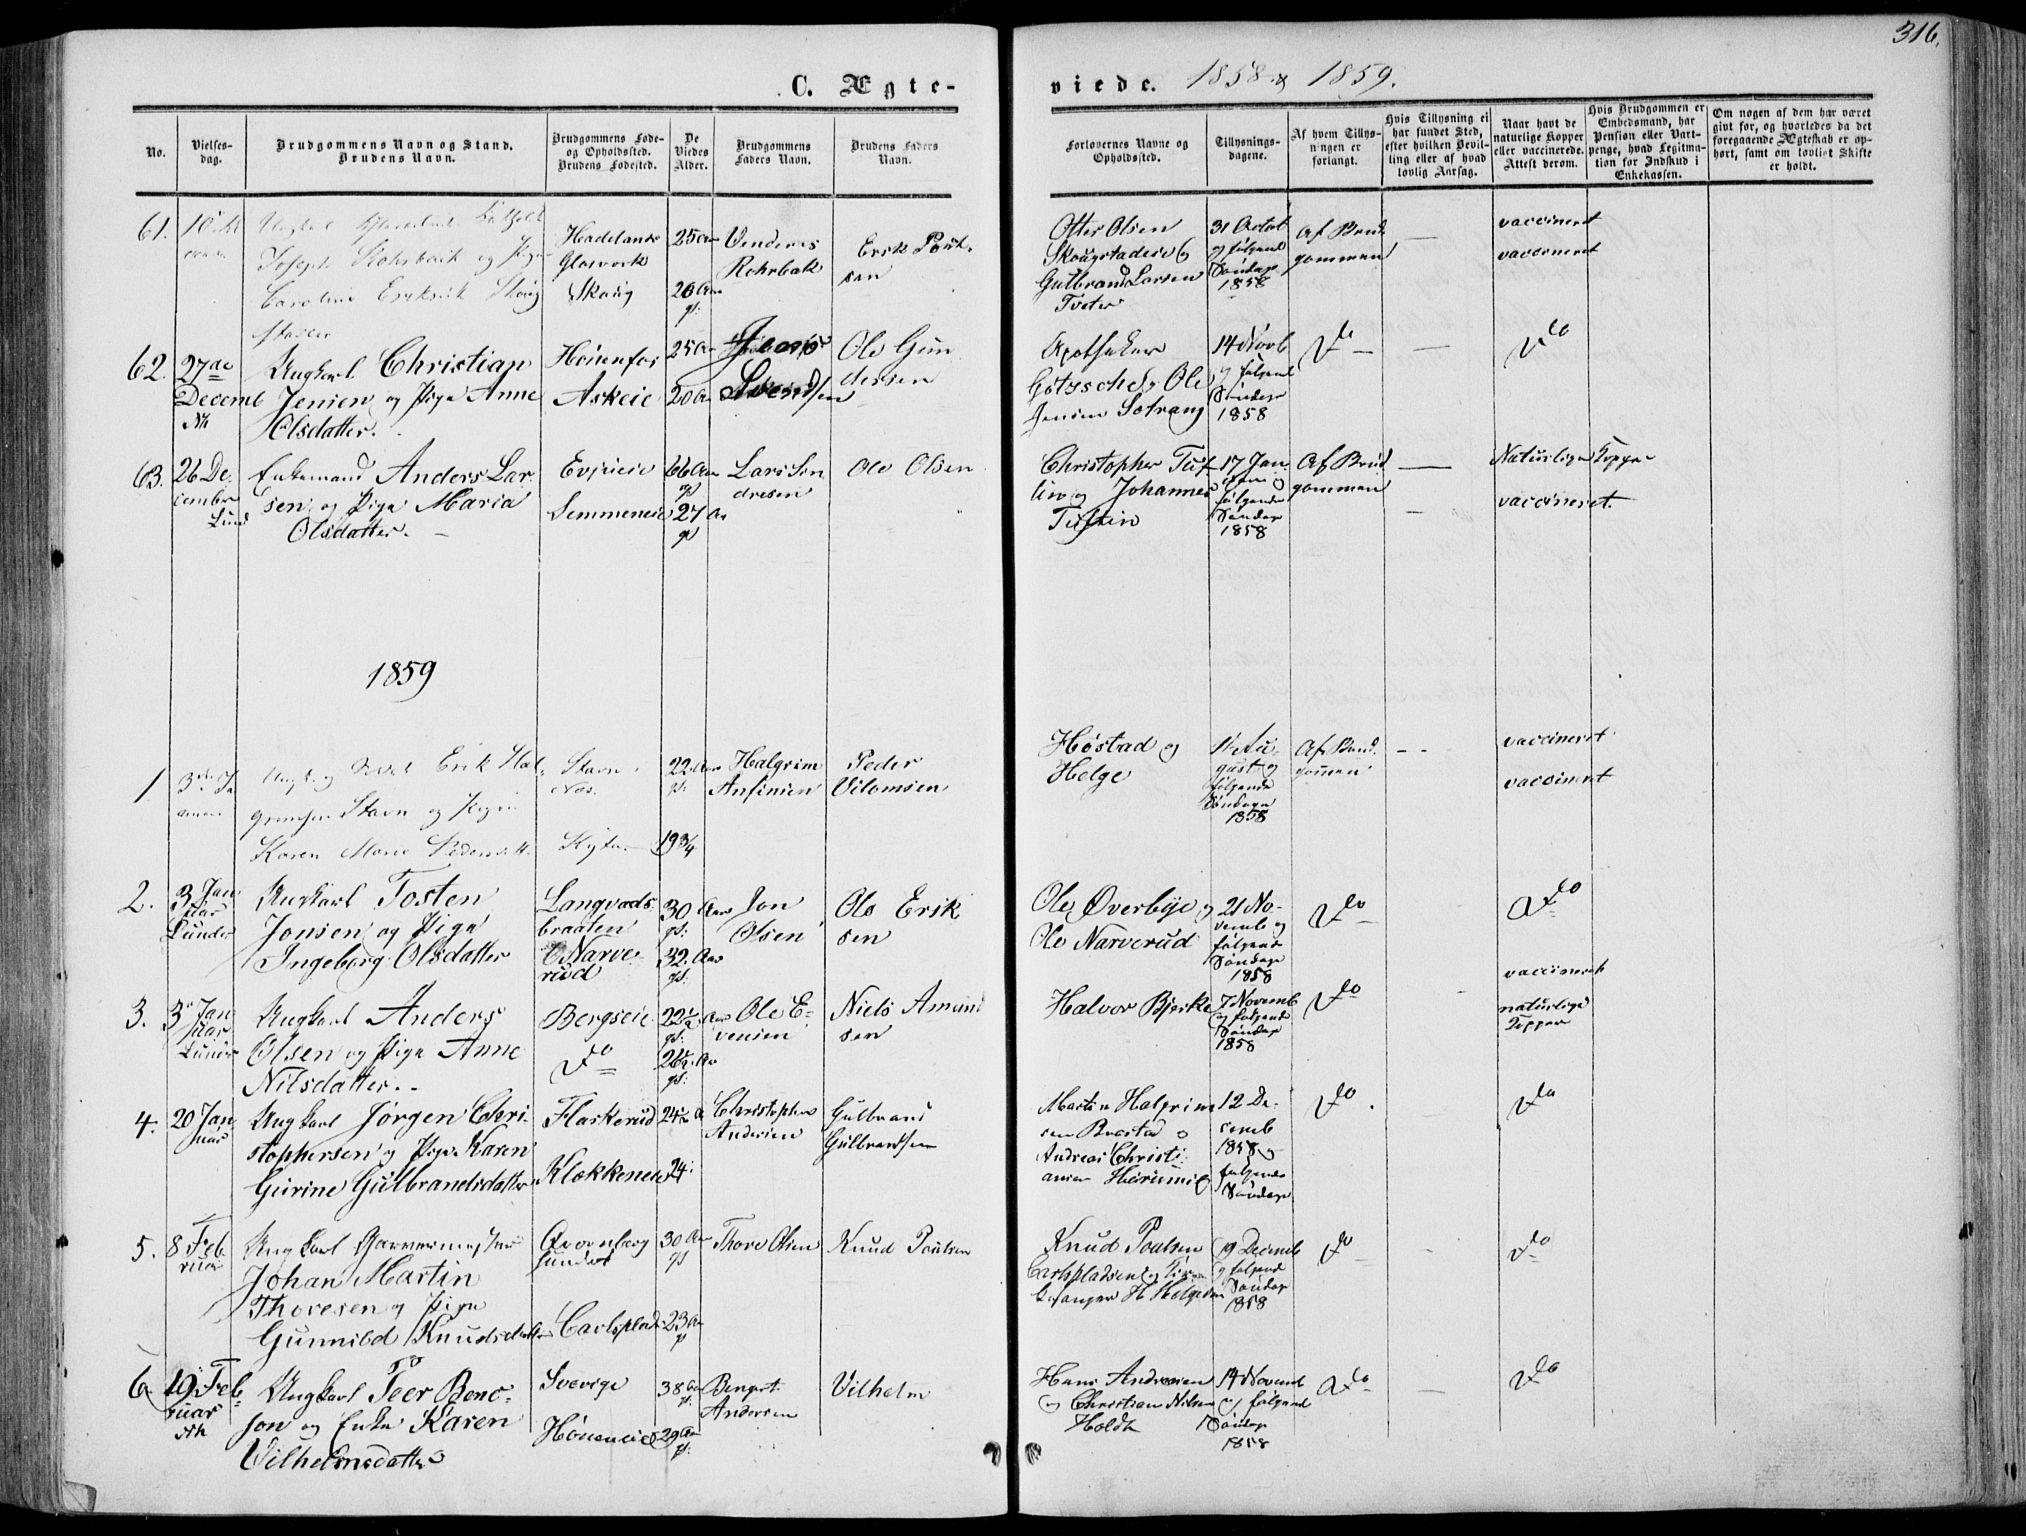 316.
C. Ægte-
viede. 1858 & 1859.
No.
Vielses-
dag.
Brudgommens Navn og Stand.
Brudens Navn.
Brudgommens Føde-
og Opholdssted.
Brudens Fødested.
De
Viedes
Alder.
Brudgommens
Faders Navn.
Brudens Faders
Navn.
Forlovernes Navne og
Opholdssted.
Tillysnings-
dagene.
Af hvem Tillys-
ningen er
forlangt.
Hvis Tillysning ei
har fundet Sted,
efter hvilken Bevil-
ling eller af hvad
lovlig Aarsag.
Naar havt de
naturlige Kopper
eller vaccinerede.
Attest derom.
Hvis Brudgommen er
Embedsmand, har
Pension eller Vart-
penge, hvad Legitima-
tion for Indskud i
Enkekassen.
Om nogen af dem har været
givt før, og hvorledes da det
foregaaende Ægteskab er op-
hørt, samt om lovligt Skifte
er holdt.
61.
Joseph Rohrback og Pige
Caroline Eriksd. Skoug
stadeie
Hadelands
Glasværk
Skoug
25 Aar
26 Aar
gl:
Venderes
Rohrbak
Erik Poul-
sen
Otter Olsen
Skougstadeie og
Gulbrand Larsen
Tveter
31 Octob
og følgende
Søndage
1858
Af Brud
gommen
—
vaccineret
vaccineret
62.
27de
Decemb
Nh
Ungkarl Christian
Jensen og Pige Anne
Olsdatter.
Hønenfos
Askeie
25 Aar
20 Aar
Jens
Svendsen
Ole Gun
dersen
Apotheker
Götzsche og Ole
Jensen Setrang
14 Novb
og følgende
Søndage
1858
do
—
do
63.
26 De-
cember
Lund
Enkemand Anders Lar-
sen og Pige Maria
Olsdatter. —
Evjeeie
Semmeneie
66 Aar
gl
27 Aar
gl
Lars Sen
dresen
Ole Olsen
Christopher Tuf-
tin og Johannes
Tuftin
17 Jan-
og
følgende
Søndage
1858
Af Brud
gommen
—
Naturlige Kopper
vaccineret.
1859
1
3de Ja
nuar
Erik Hal-
grimsen Stavn og Pige
Karen Marie Pedersdtt.
Stavn
Næs.
22 Aar
gl:
19 3/4
Halgrim
Anfinsen
Peder
Vilomsen
Høstad og
Helge
1 Au-
gust og
følgende
Søndage
1858
Af Brud-
gommen
vaccineret
vaccineret
2.
3 Jan
uar
Lunder
Ungkarl Tosten
Jonsen og Pige
Ingeborg Olsdatter
Langvads
braaten
Narve-
rud
30 Aar
gl:
32 Aar
gl:
Jon
Olsen
Ole Erik
sen
Ole Øverbye og
Ole Narverud
21 No-
vemb og
følgende
Søndage
1858
do
do
3.
3 Jan
uar
Lunder
Ungkarl Anders
Olsen og Pige Anne
Nilsdatter.
Bergseie
do
22½ Aar
gl:
26½ Aar
gl:
Ole E-
vensen
Niels Amund
sen
Halvor Bjerke
7 Novemb
og følgende
Søndage
1858
do
vaccineret
naturlige
Kopper
4.
20 Jan
uar
Ungkarl Jørgen Chri-
stophersen og Pige Karen
Gurine Gulbrandsdatter
Flaskerud
Klækkeneie
24
24
Christopher
Andersen
Gulbrand
Gulbrandsen
Martin Halgrim
sen Brøstad og
Andreas Christi-
ansen
12 De-
cemb
1858 og
følgende
Søndage
do
do
5.
8 Feb
ruar
Ungkarl Garvermester
Johan Martin
Thoresen og Pige
Gunnild Knudsdatter
Carlsplads
30 Aar
gl
23 Aar
gl
Thore Olsen
Knud Poulsen
Knud Poulsen
Carlspladsen og
H. Helgesen
19 Decemb
og følgend
Søndage
1858
do
do
6
19 Feb
ruar
Nh
Ungkarl Peer Benc-
son og Enke Karen
Vilhelmsdatter
Sverige
Høneneie
38 Aar
gl:
29 Aar
gl:
Bengst
Andersen
Vilhelm
Hans Andresen
og Christian Nilsen
Holdt
14 Novemb
og følgend
Søndage
1858
do
—
do